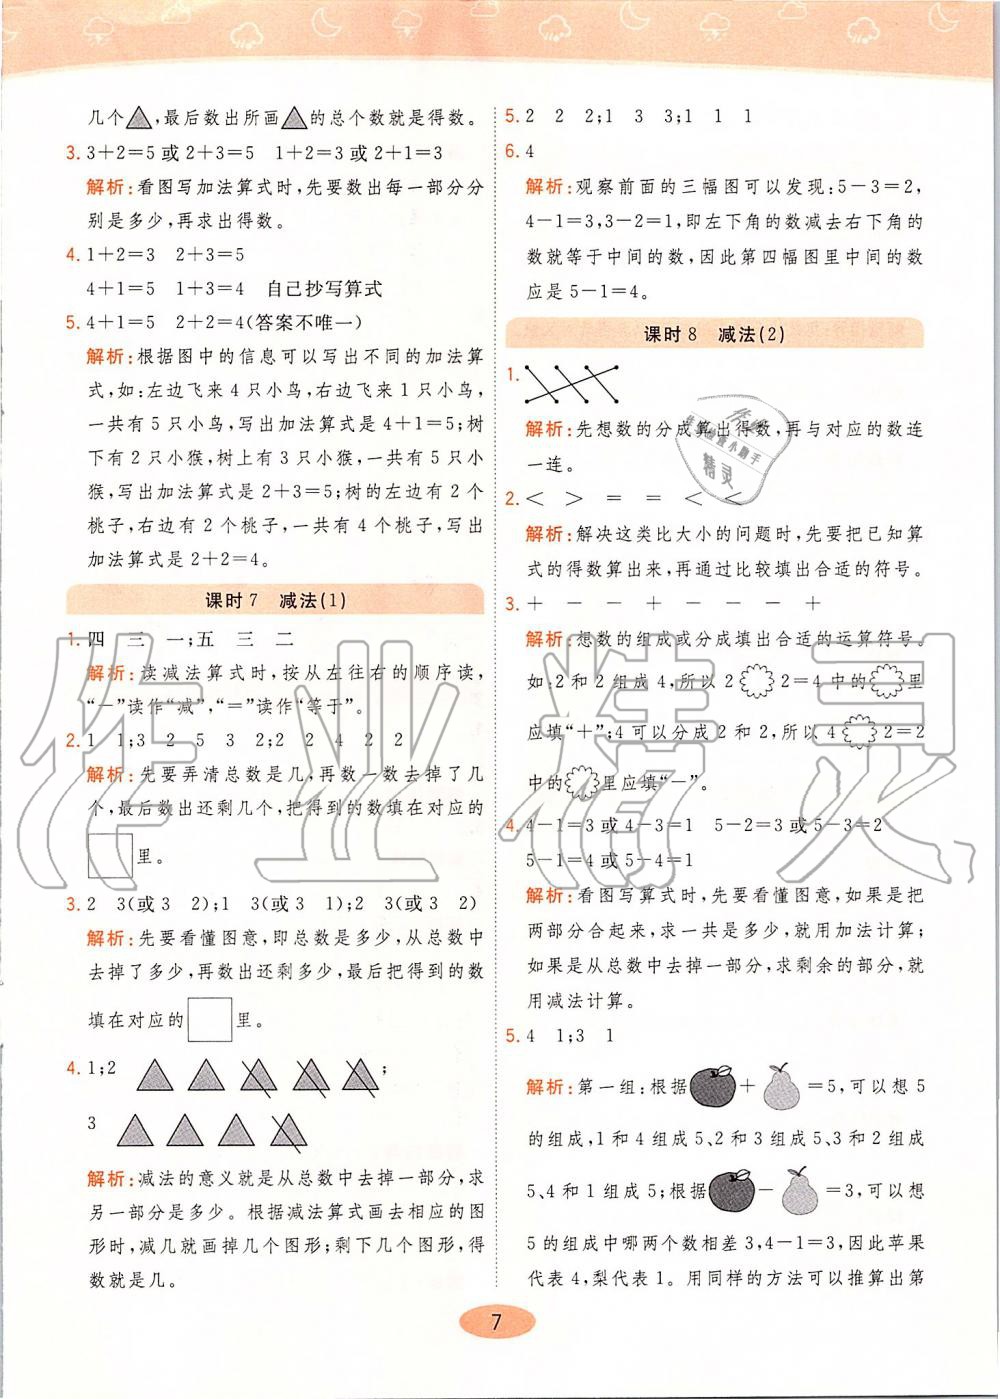 几个▲,最后数出所画▲的总个数就是得数。
3. 3+2=5或2+3=5 1+2=3或2+1=3
解析:看图写加法算式时,先要数出每一部分分
别是多少,再求出得数。
4. 1+2=3 2+3=5
4+1=5 1+3=4 自己抄写算式
5. 4+1=5 2+2=4(答案不唯一)
解析:根据图中的信息可以写出不同的加法算
式,如:左边飞来4只小鸟,右边飞来1只小鸟,
一共有5只小鸟,写出加法算式是4+1=5;树
下有2只小猴,树上有3只小猴,一共有5只小
猴,写出加法算式是2+3=5;树的左边有2个
桃子,右边有2个桃子,一共有4个桃子,写出
加法算式是2+2=4。
课时7 减法(1)
1. 四 三 一;五 三 二
解析:读减法算式时,按从左往右的顺序读,
“-”读作“减”,“=”读作“等于”。
2. 1 1;3 2 5 3 2;2 2 4 2 2
解析:先要弄清总数是几,再数一数去掉了几
个,最后数出还剩几个,把得到的数填在对应的
□里。
3. 2 3(或3 2);1 3(或3 1);2 3(或3 2)
解析:先要看懂图意,即总数是多少,从总数中
去掉了多少,再数出还剩多少,最后把得到的数
填在对应的□里。
4. 1;2 ;
3
解析:减法的意义就是从总数中去掉一部分,求
另一部分是多少。根据减法算式画去相应的图
形时,减几就画掉几个图形;剩下几个图形,得
数就是几。
5. 2 2 2;1 3 3;1 1 1
6. 4
解析:观察前面的三幅图可以发现:5-3=2,
4-1=3,3-2=1,即左下角的数减去右下角的
数就等于中间的数,因此第四幅图里中间的数
应是5-1=4。
课时8 减法(2)
1.
解析:先想数的分成算出得数,再与对应的数连
一连。
2. < > = = < <
解析:解决这类比大小的问题时,先要把已知算
式的得数算出来,再通过比较填出合适的符号。
3. + - - + - - - +
解析:想数的组成或分成填出合适的运算符号。
如:2和2组成4,所以2 2=4中的 里
应填“+”;4可以分成2和2,所以4 2=2
中的 里应填“-”。
4. 4-1=3或4-3=1 5-2=3或5-3=2
5-1=4或5-4=1
解析:看图写算式时,先要看懂图意,如果是把
两部分合起来,求一共是多少,就用加法计算;
如果是从总数中去掉一部分,求剩余的部分,就
用减法计算。
5. 4 1;3 1
解析:第一组:根据 + =5,可以想5
的组成,1和4组成5、2和3组成5、3和2组成
5、4和1组成5;根据 - =3,可以想
5的组成中哪两个数相差3,4-1=3,因此苹果
代表4,梨代表1。用同样的方法可以推算出第
7
作业精灵